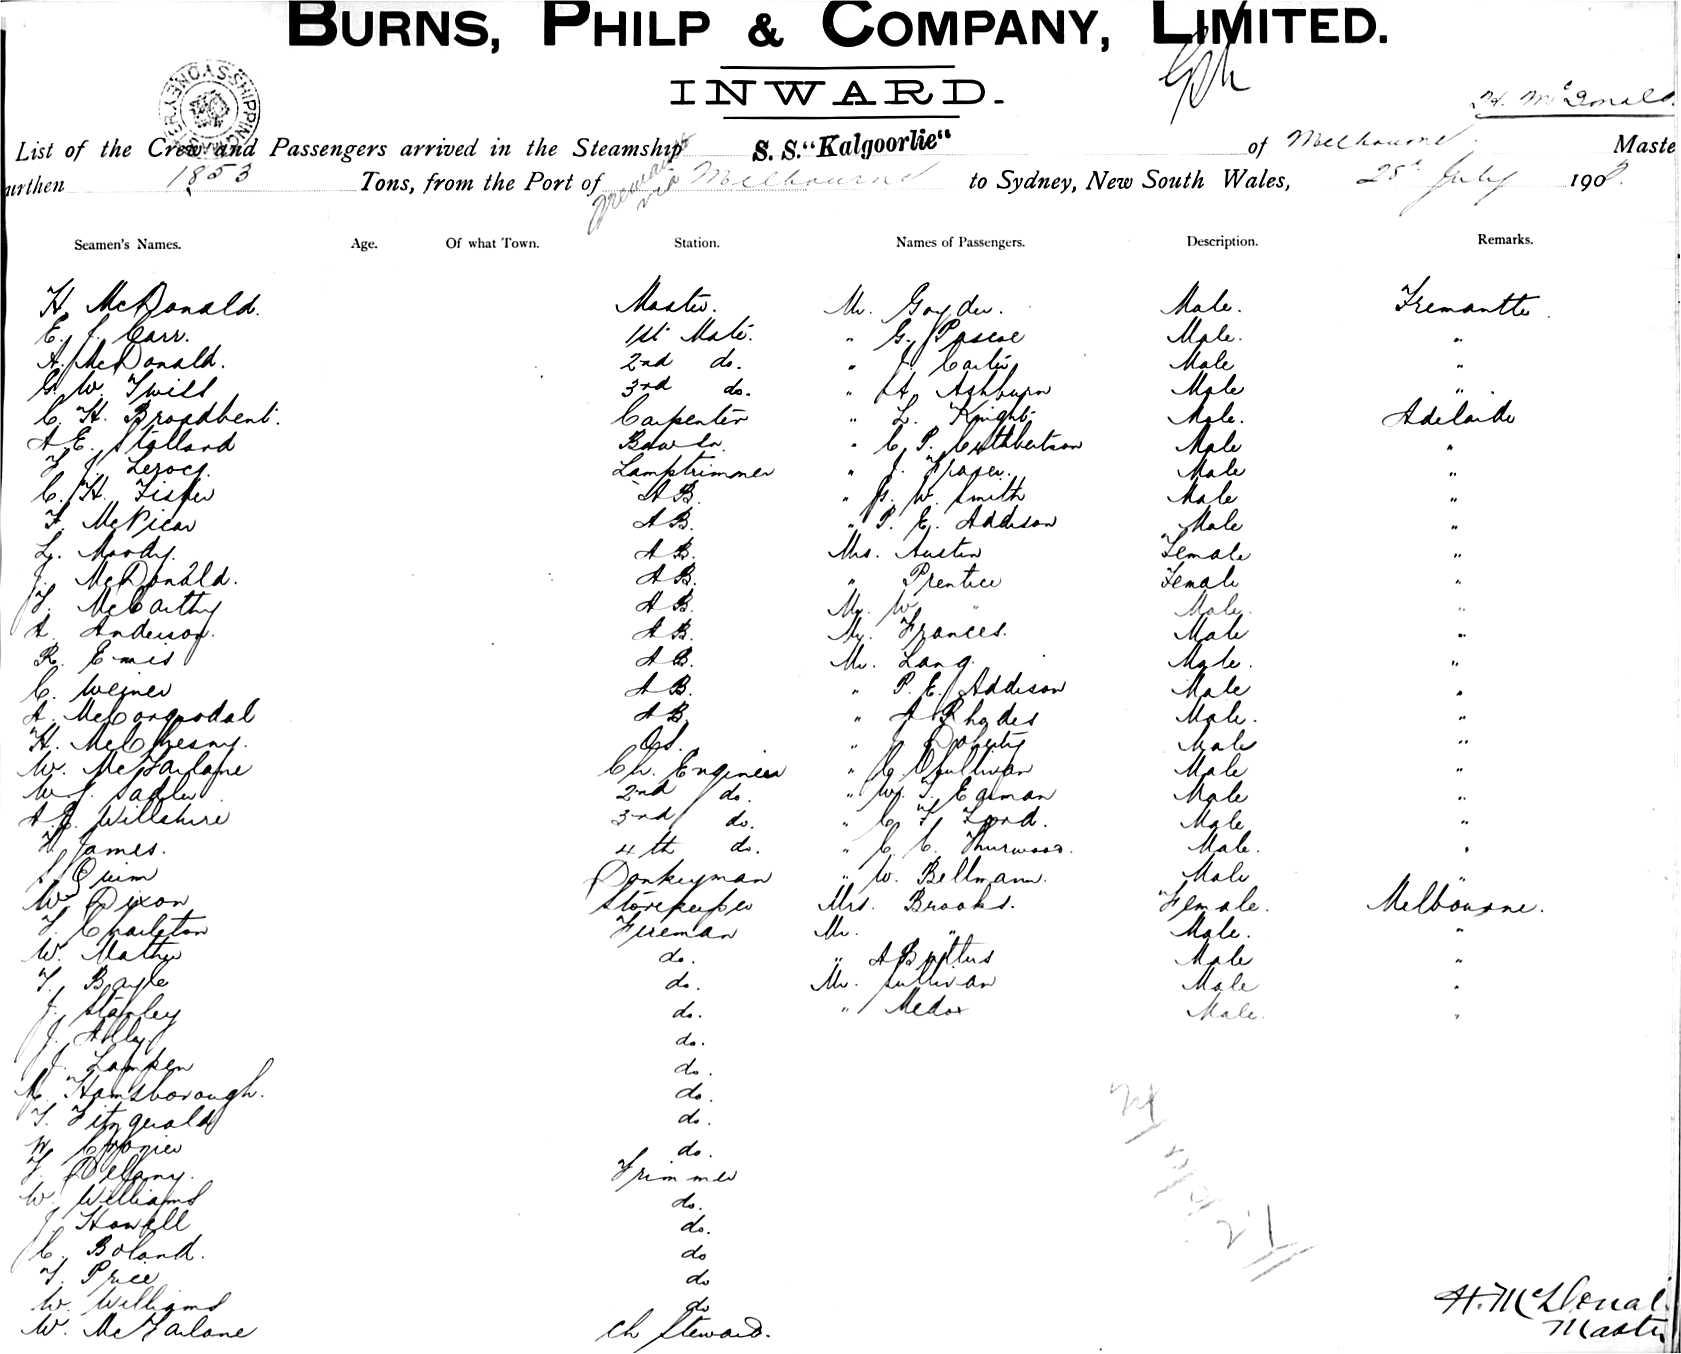 BURNS, PHILP & COMPANY, LIMITED.
INWARD.
H. McDonald
List of the Crew and Passengers arrived in the Steamship S. S. "Kalgoorlie" of Melbourne Maste
urthen 1853 Tons, from the Port of Fremantle via Melbourne to Sydney, New South Wales, 25th July 1908.
Seamen's Names. Age. Of what Town. Station. Names of Passengers. Description. Remarks.
H. McDonald. Master. Mr. Goyder. Male. Fremantle.
E. J. Carr. 1st Mate. " G. Pascoe Male. "
A. McDonald. 2nd do. " J. Carter Male "
G. W. Twill 3rd do. " H. Ashburn Male "
C. H. Broadbent. Carpenter " L. Knight. Male. Adelaide
A. E. Stalland Bowsn. " C. P. Cuthbertson Male "
Lamptrimmer " J. Fraser. Male "
C. H. Fisher AB. " G. W. Smith Male "
F. McVicar AB. " P. E. Addison Male "
L. Moody. AB. Mrs. Austin Female "
J. McDonald. AB. " Prentice Female "
T. McCarthy AB. Mr. W. " Male. "
A. Anderson. AB. Mr. Frances. Male "
R. Emis AB. Mr. Lang. Male. "
C. Weiner AB. " P. E. Addison Male "
A. McCorquodal AB " A Rhodes Male. "
H. McChesny. O.S. " J Doherty Male "
W. McFarlane Ch. Engineer " C OSullivan Male "
W. J. Sadler 2nd do. " W. T. Easman Male "
A. J. Willshire 3rd do. " C. F. Lord. Male "
James. 4th do. " C. C. Thurwood. Male. "
Quim Donkeyman " W. Bellmann. Male "
W. Dixon Storekeeper Mrs. Brooks. Female. Melbourne.
T. Charleton Fireman Mr. " Male. "
W. Mather do. " A Male "
T. Boyle do. Mr. Sullivan Male "
J. Stanley do. " Medox Male. "
J. Ally do.
J. Lampen do.
Hamsborough. do.
T. Fitzgerald do.
W. Crozier do.
T. Bellamy. Trimmer
W. Williams do.
J. Howell do.
C. Boland. do
T. Price do
W. Williams do
W. McFarlane Ch Steward.
H. McDonal
Master